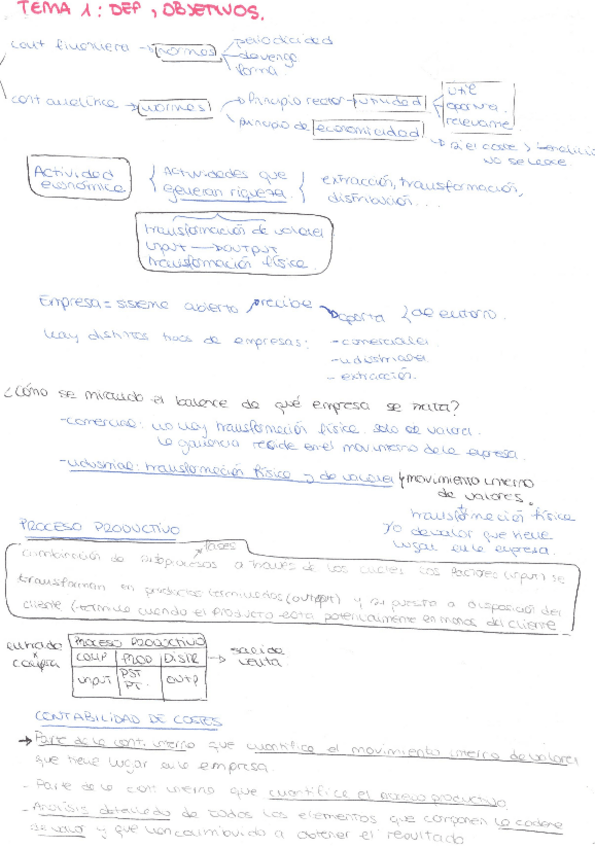 TEMA 1: DEF, OBJETIVOS.
cont financiera → normas periodicidad
devengo
forma
cont analítica → normas → Principio rector → utilidad útil
oportuna
relevante
principio de economicidad → si el coste > beneficio
no se hace
Actividad económica { Actividades que generan riqueza { extracción, transformación, distribución...
transformación de valores
input → output
transformación física
Empresa = sistema abierto recibe aporta { de entorno.
Hay distintos tipos de empresas: - comerciales
- industriales
- extracción.
¿Cómo se mirando el balance de qué empresa se trata?
- comercial: no hay transformación física. solo de valores.
la ganancia reside en el movimiento de la empresa.
- industrial: transformación física y de valores y movimiento interno
de valores.
transformación física
y/o de valor que tiene
lugar en la empresa.
PROCESO PRODUCTIVO
fases
combinación de subprocesos a través de los cuales los factores (input) se
transforman en productos terminados (output) y su puesta a disposición del
cliente (termina cuando el producto está potencialmente en manos del cliente
entrada
compra
PROCESO PRODUCTIVO
COMP PROD DISTR → salida
venta
INPUT PST
PT. OUTP
CONTABILIDAD DE COSTES
→ Parte de la cont. interna que cuantifica el movimiento interno de valores
que tiene lugar en la empresa.
- Parte de la cont interna que cuantifica el proceso productivo.
- Análisis detallado de todos los elementos que componen la cadena
de valor y que han contribuido a obtener el resultado